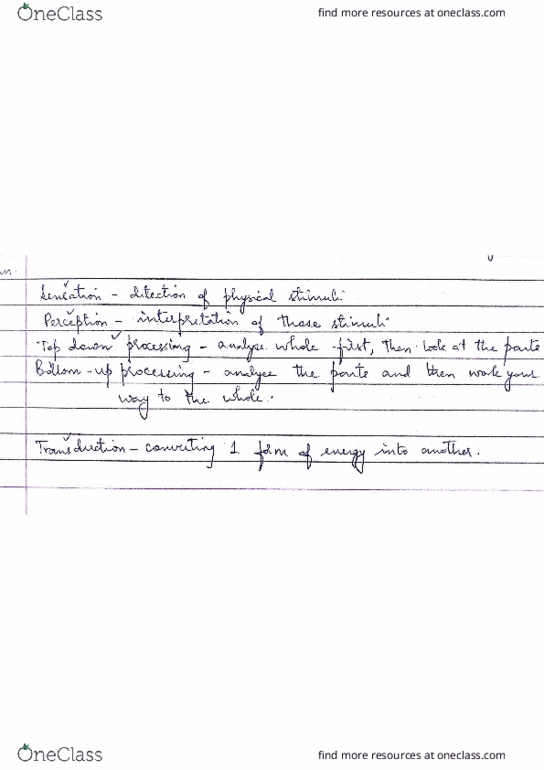 OneClass
find more resources at oneclass.com
Sensation - detection of physical stimuli
Perception - interpretation of those stimuli
Top down processing - analyze whole first, then look at the parts
Bottom-up processing - analyze the parts and then work your
way to the whole.
Transduction - converting 1 form of energy into another.
OneClass
find more resources at oneclass.com